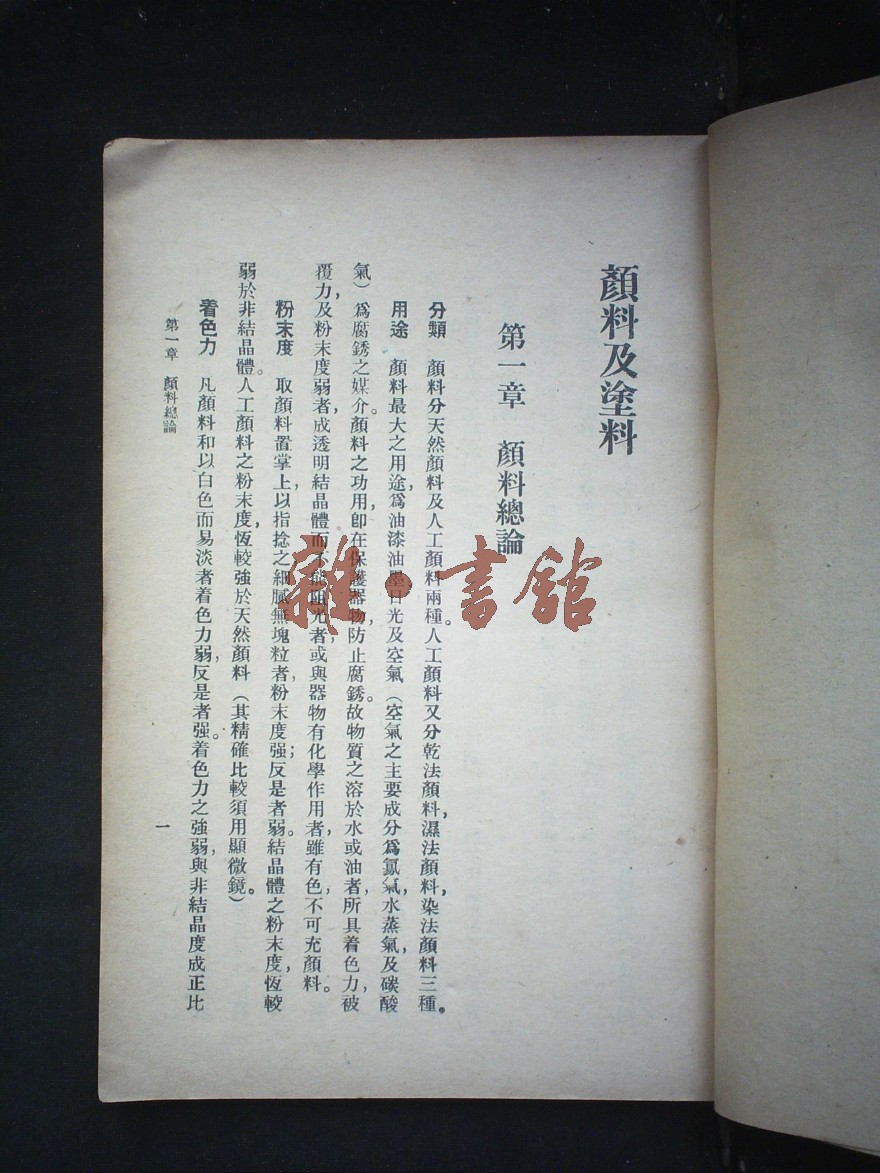 顏料及塗料
第一章　顏料總論
分類　顏料分天然顏料及人工顏料兩種。人工顏料又分乾法顏料，濕法顏料，染法顏料三種。
用途　顏料最大之用途，爲油漆油墨。日光及空氣（空氣之主要成分爲氯氣，水蒸氣，及碳酸
氣）爲腐銹之媒介。顏料之功用，卽在保護器物，防止腐銹。故物質之溶於水或油者，所具着色力，被
覆力，及粉末度弱者，成透明結晶體而不能阻光者，或與器物有化學作用者，雖有色，不可充顏料。
粉末度　取顏料置掌上，以指捻之，細膩無塊粒者，粉末度强；反是者弱。結晶體之粉末度，恆較
弱於非結晶體。人工顏料之粉末度，恆較強於天然顏料（其精確比較須用顯微鏡。）
着色力　凡顏料和以白色而易淡者着色力弱，反是者强。着色力之強弱與非結晶度成正比
第一章　顏料總論
一
雜·書館